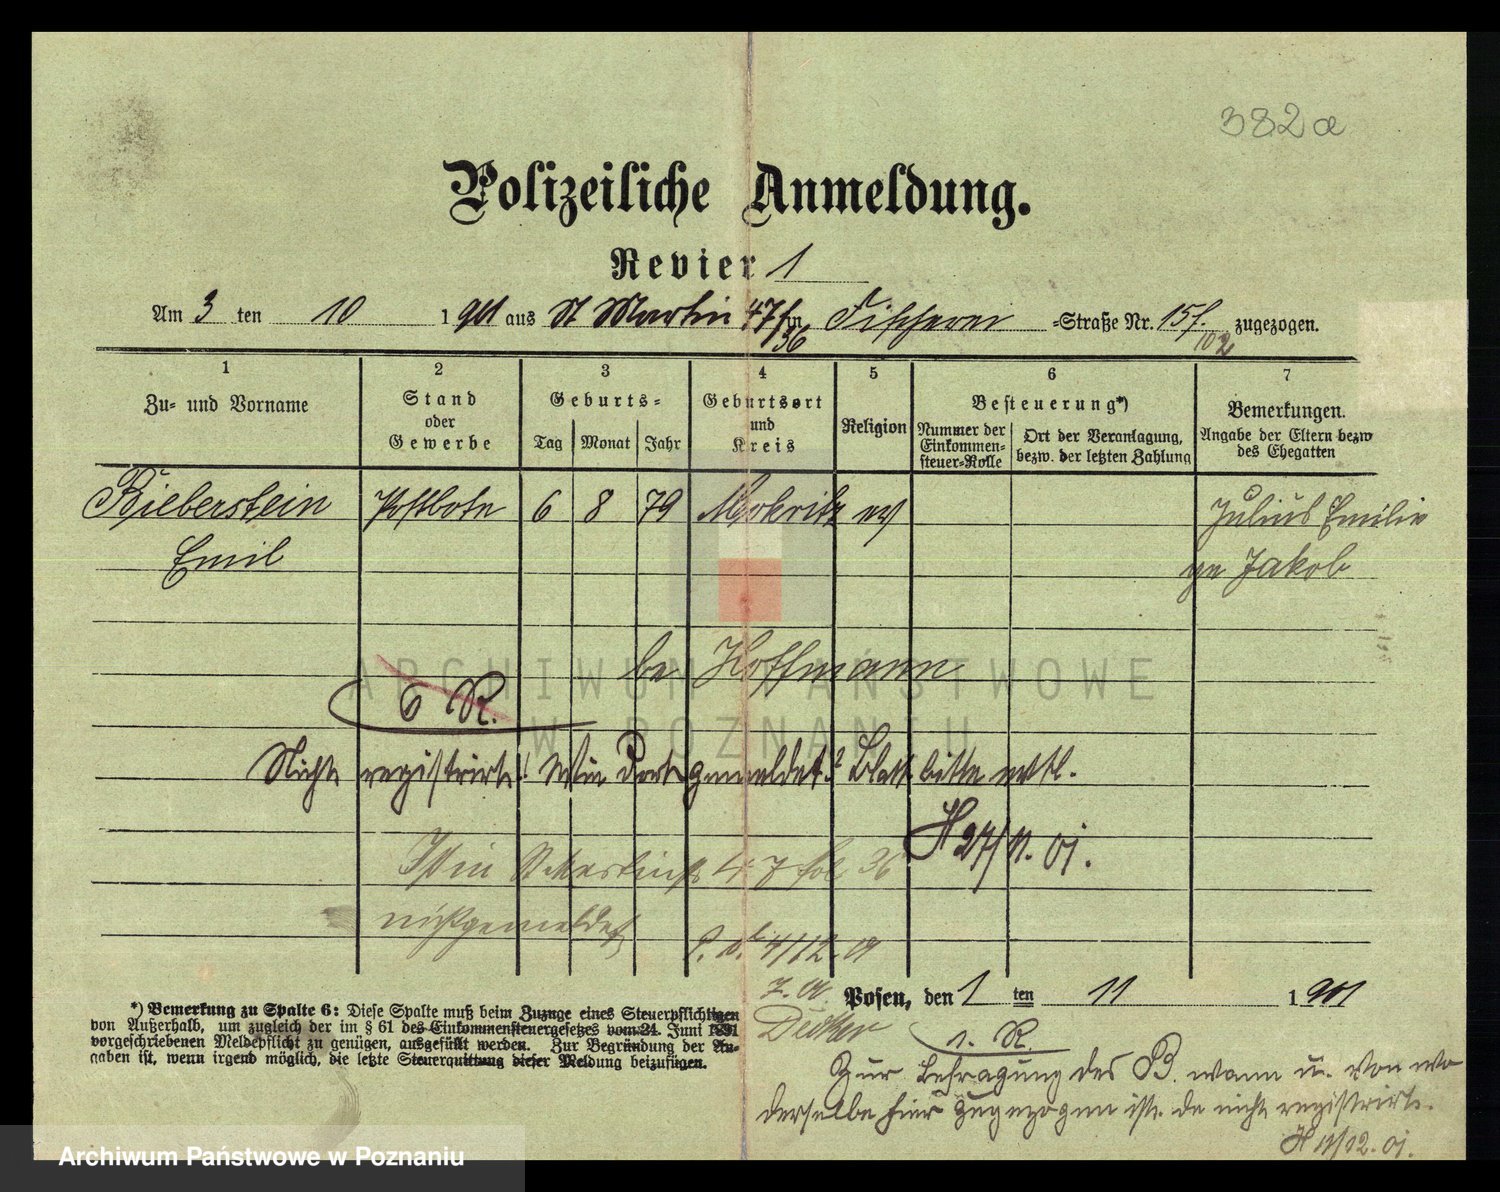 382a
Polizeiliche Anmeldung.
Revier 1
Am 3 ten 10 1901 aus St Martin 47/36 in Fischerei -Straße Nr. 15 f. 102 zugezogen.
1 2 3 4 5 6 7
Zu- und Vorname
Stand oder Gewerbe
Geburts-
Tag Monat Jahr
Geburtsort und Kreis
Religion
Besteuerung*)
Nummer der Einkommen-steuer-Rolle
Ort der Veranlagung, bezw. der letzten Zahlung
Bemerkungen.
Angabe der Eltern bezw des Ehegatten
Bieberstein Postbote 6 8 79 Mokritz ev Julius Emilie
Emil ge Jakob
bei Hoffmann
6 R.
Nicht registrirt! Wie dort gemeldet? Blatt bitte evtl.
H 27/11. 01.
Ist in St Martinstr 47 fol 36
nicht gemeldet
4/12. 01
Posen, den 1 ten 11 1901
*) Bemerkung zu Spalte 6: Diese Spalte muß beim Zuzuge eines Steuerpflichtigen
von Außerhalb, um zugleich der im § 61 des Einkommensteuergesetzes vom 24. Juni 1891
vorgeschriebenen Meldepflicht zu genügen, ausgefüllt werden. Zur Begründung der An-
gaben ist, wenn irgend möglich, die letzte Steuerquittung dieser Meldung beizufügen.
1. R.
Zur Befragung des B. wann u. von wo
derselbe hier zugezogen ist. da nicht registrirt.
H 11/12. 01.
ARCHIWUM PAŃSTWOWE
W POZNANIU
Archiwum Państwowe w Poznaniu